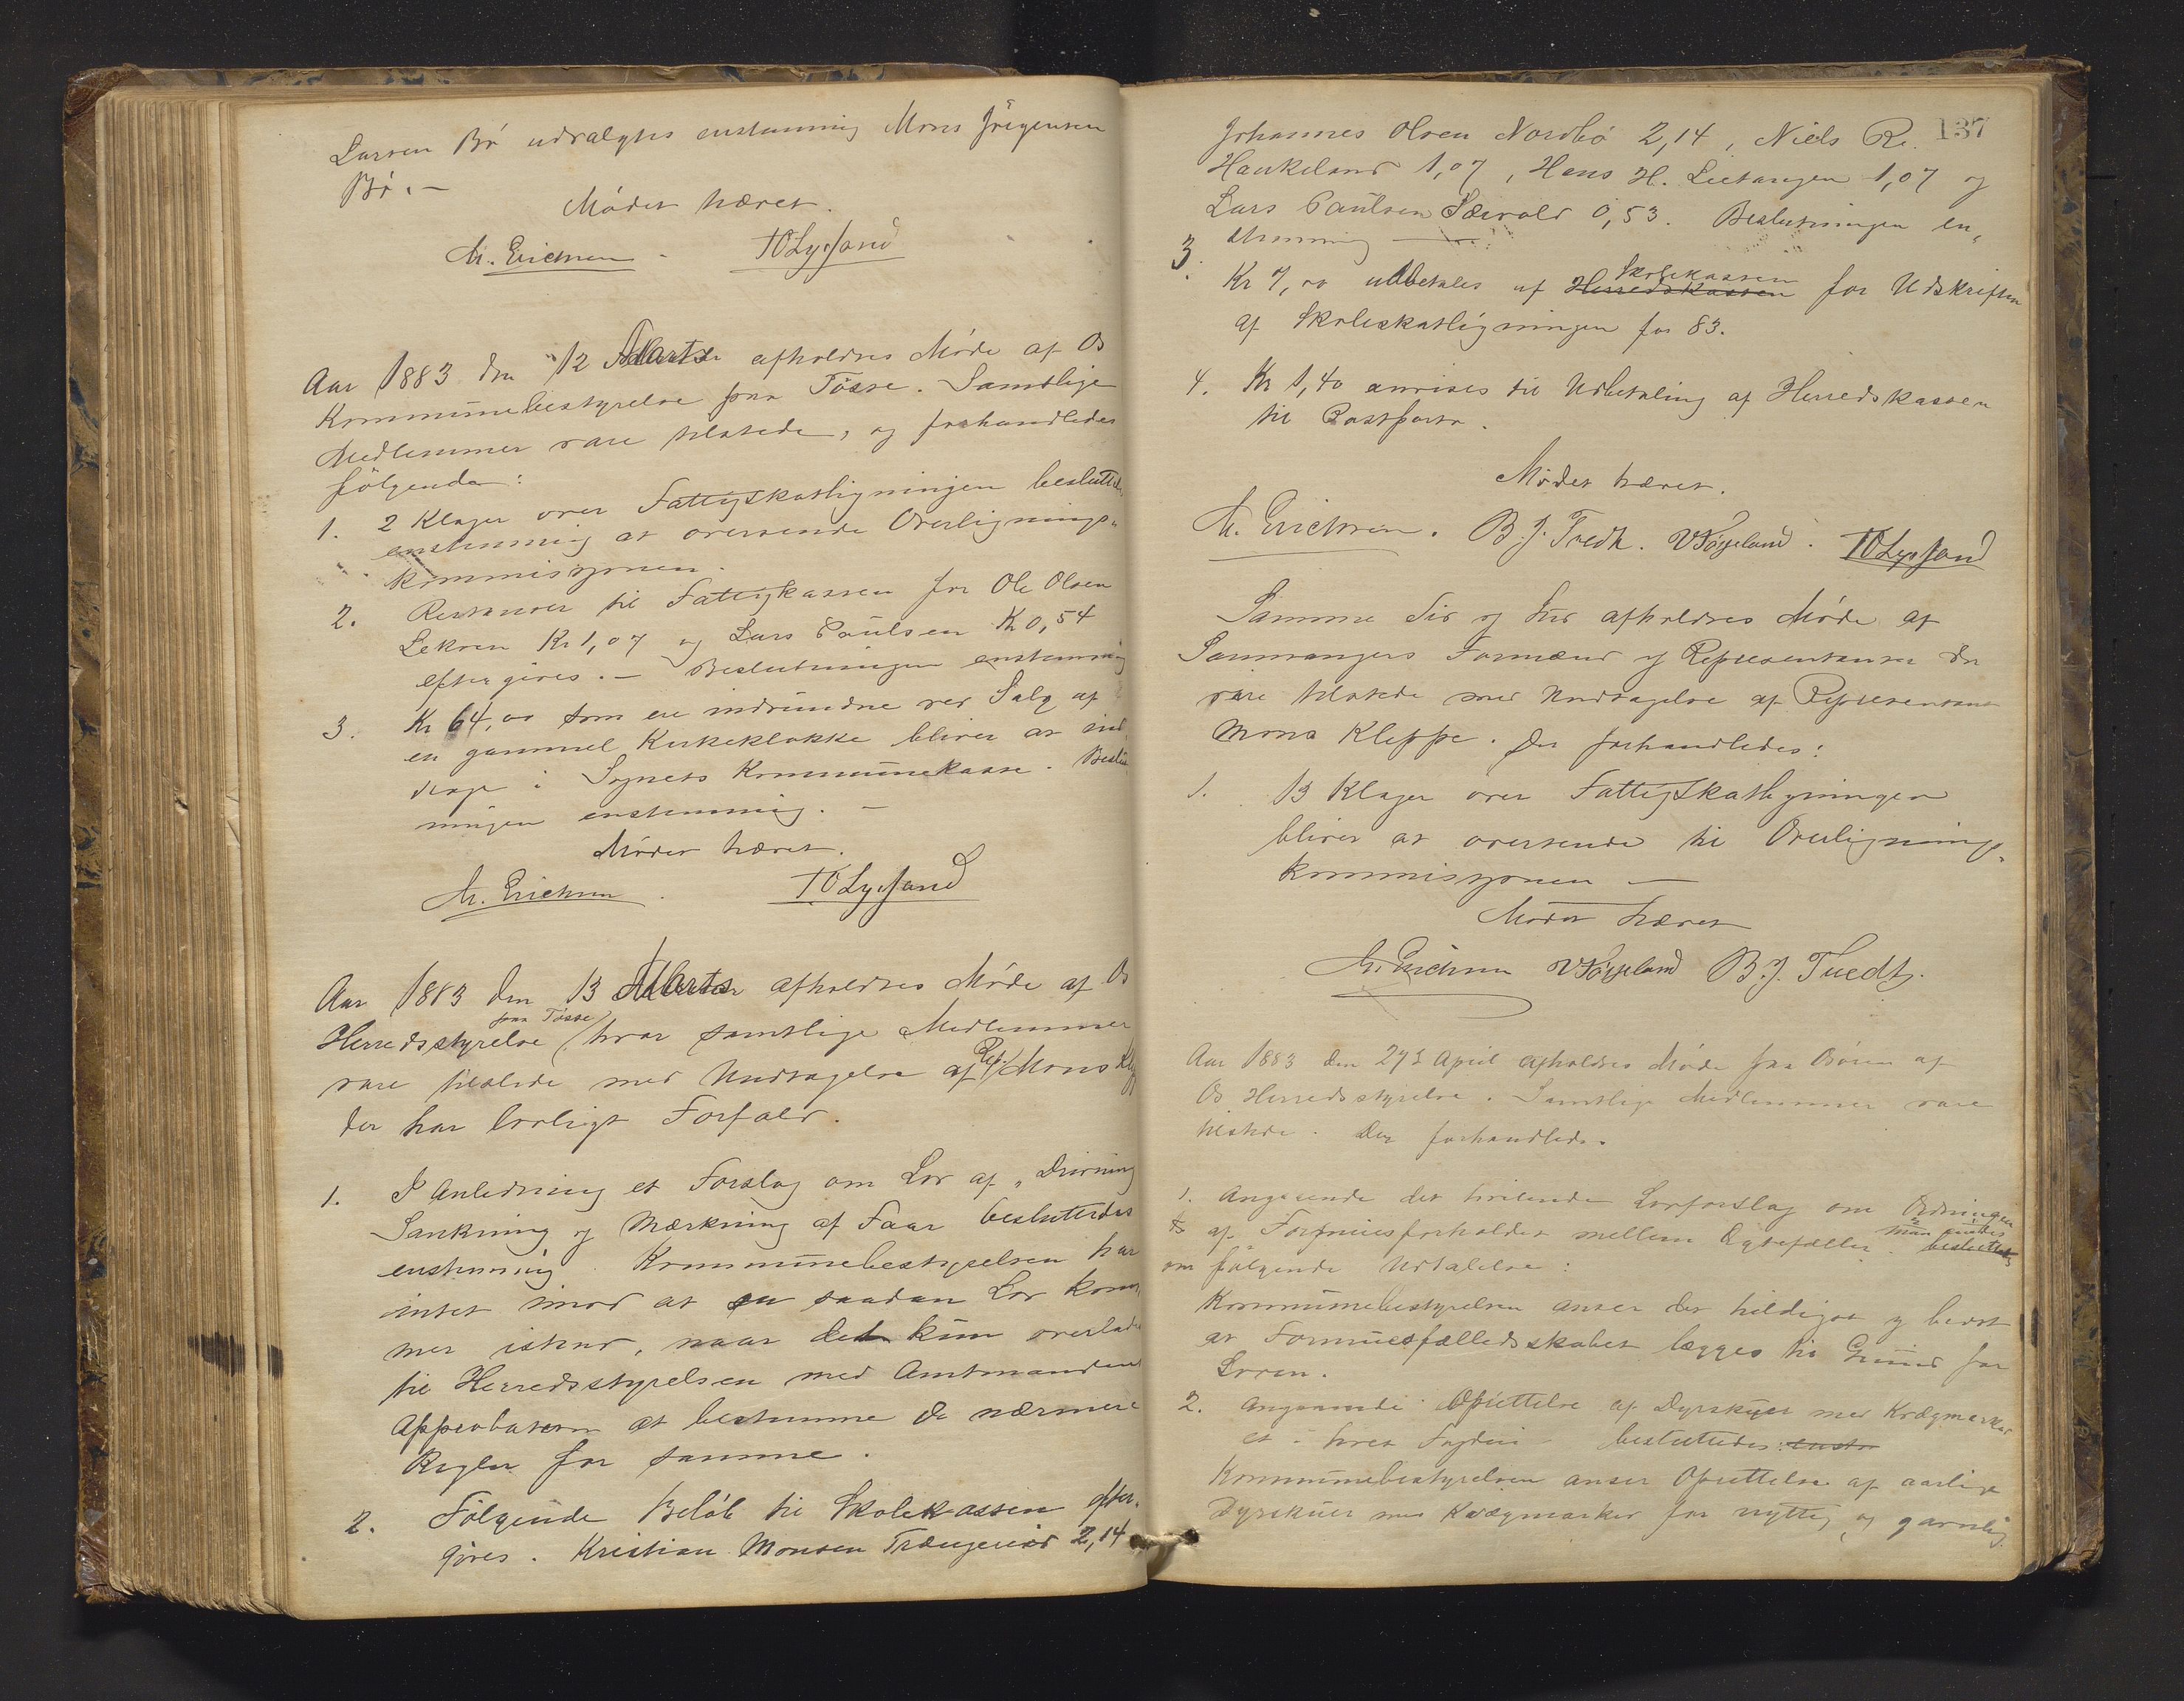 Larsen Bö udvalgtes enstemmig Mons Jörgensen
Bö. –
Mödet hævet.
M. Erichsen. TOLysand
Aar 1883 den 12 Marts afholdtes Möde af Os
Kommunebestyrelse paa Tösse. Samtlige
Medlemmer vare tilstede, og forhandledes
fölgende:
1. 2 Klager over Fattigskatligningen besluttedes
enstemmig at oversende Overlignings„
kommisjonen.
2. Restancer til Fattigkassen for Ole Olsen
Lekven Kr 1,07 og Lars Paulsen Kr 0,54
eftergives. – Beslutningen enstemmig
3. Kr 64,00 som ere indvundne ved Salg af
en gammel Kirkeklokke bliver at ind„
drage i Sognets Kommunekasse. Beslut
ningen enstemmig. –
Mödet hævet.
M. Erichsen. TOLysand
Aar 1883 den 13 Marts afholdtes Möde af Os
paa Tösse
Herredsstyrelse hvor samtlige Medlemmer
vare tilstede med Undtagelse af Rep. Mons Klep
der har lovligt Forfald.
1. I Anledning et Forslag om Lov af „Drivning
Sankning og Mærkning af Faar besluttedes
enstemmig. Kommunebestyrelsen har
intet imod at en saadan Lov kom„
mer istand, naar det kun overlades
til Herredsstyrelsen med Amtmandens
Approbation at bestemme de nærmere
Regler for samme.
2. Fölgende Belöb til Skolekassen efter„
gives. Kristian Monsen Trængereid 2,14
137
Johannes Olsen Nordbö 2,14, Niels Re.
Haukeland 1,07, Hans H. Lietangen 1,07 og
Lars Paulsen Særvold 0,53. Beslutningen en„
stemmig
3. Kr 7,00 udbetales af Herredskassen Skolekassen for Udskriften
af Skoleskatligningen for 83.
4. Kr 1,40 anvises til Udbetaling af Herredskassen
til Postporto.
Mödet hævet.
M. Erichsen. B. J. Tvedt. VSöfteland. TOLysand
Samme Tid og Sted afholdtes Möde af
Samnangers Formænd og Repræsentanter der
vare tilstede med Undtagelse af Repræsentant
Mons Kleppe. Der forhandledes:
1. 13 Klager over Fattigskatligningen
bliver at oversende til Overlignings„
kommisjonen –
Mödet hævet
M. Erichsen VSöfteland B. J. Tvedt.
Aar 1883 den 27de April afholdtes Möde paa Bören af
Os Herredsstyrelse. Samtlige Medlemmer vare
tilstede. Der forhandledes.
1. Angaaende det hvilende Lovforslag om Ordningen
af Formuesforholdet mellem Ægtefæller besluttedes man enedes
om fölgende Udtalelse:
Kommunebestyrelsen anser det heldigst og bedst
at Formuesfælledsskabet lægges til Grund for
Loven.
2. Angaaende Oprettelse af Dyrskuer med Kvægmarked
et i hvert Fogderi besluttedes: enste
Kommunebestyrelsen anser Oprettelse af aarlige
Dyrskuer med Kvægmarker for nyttig og gavnlig